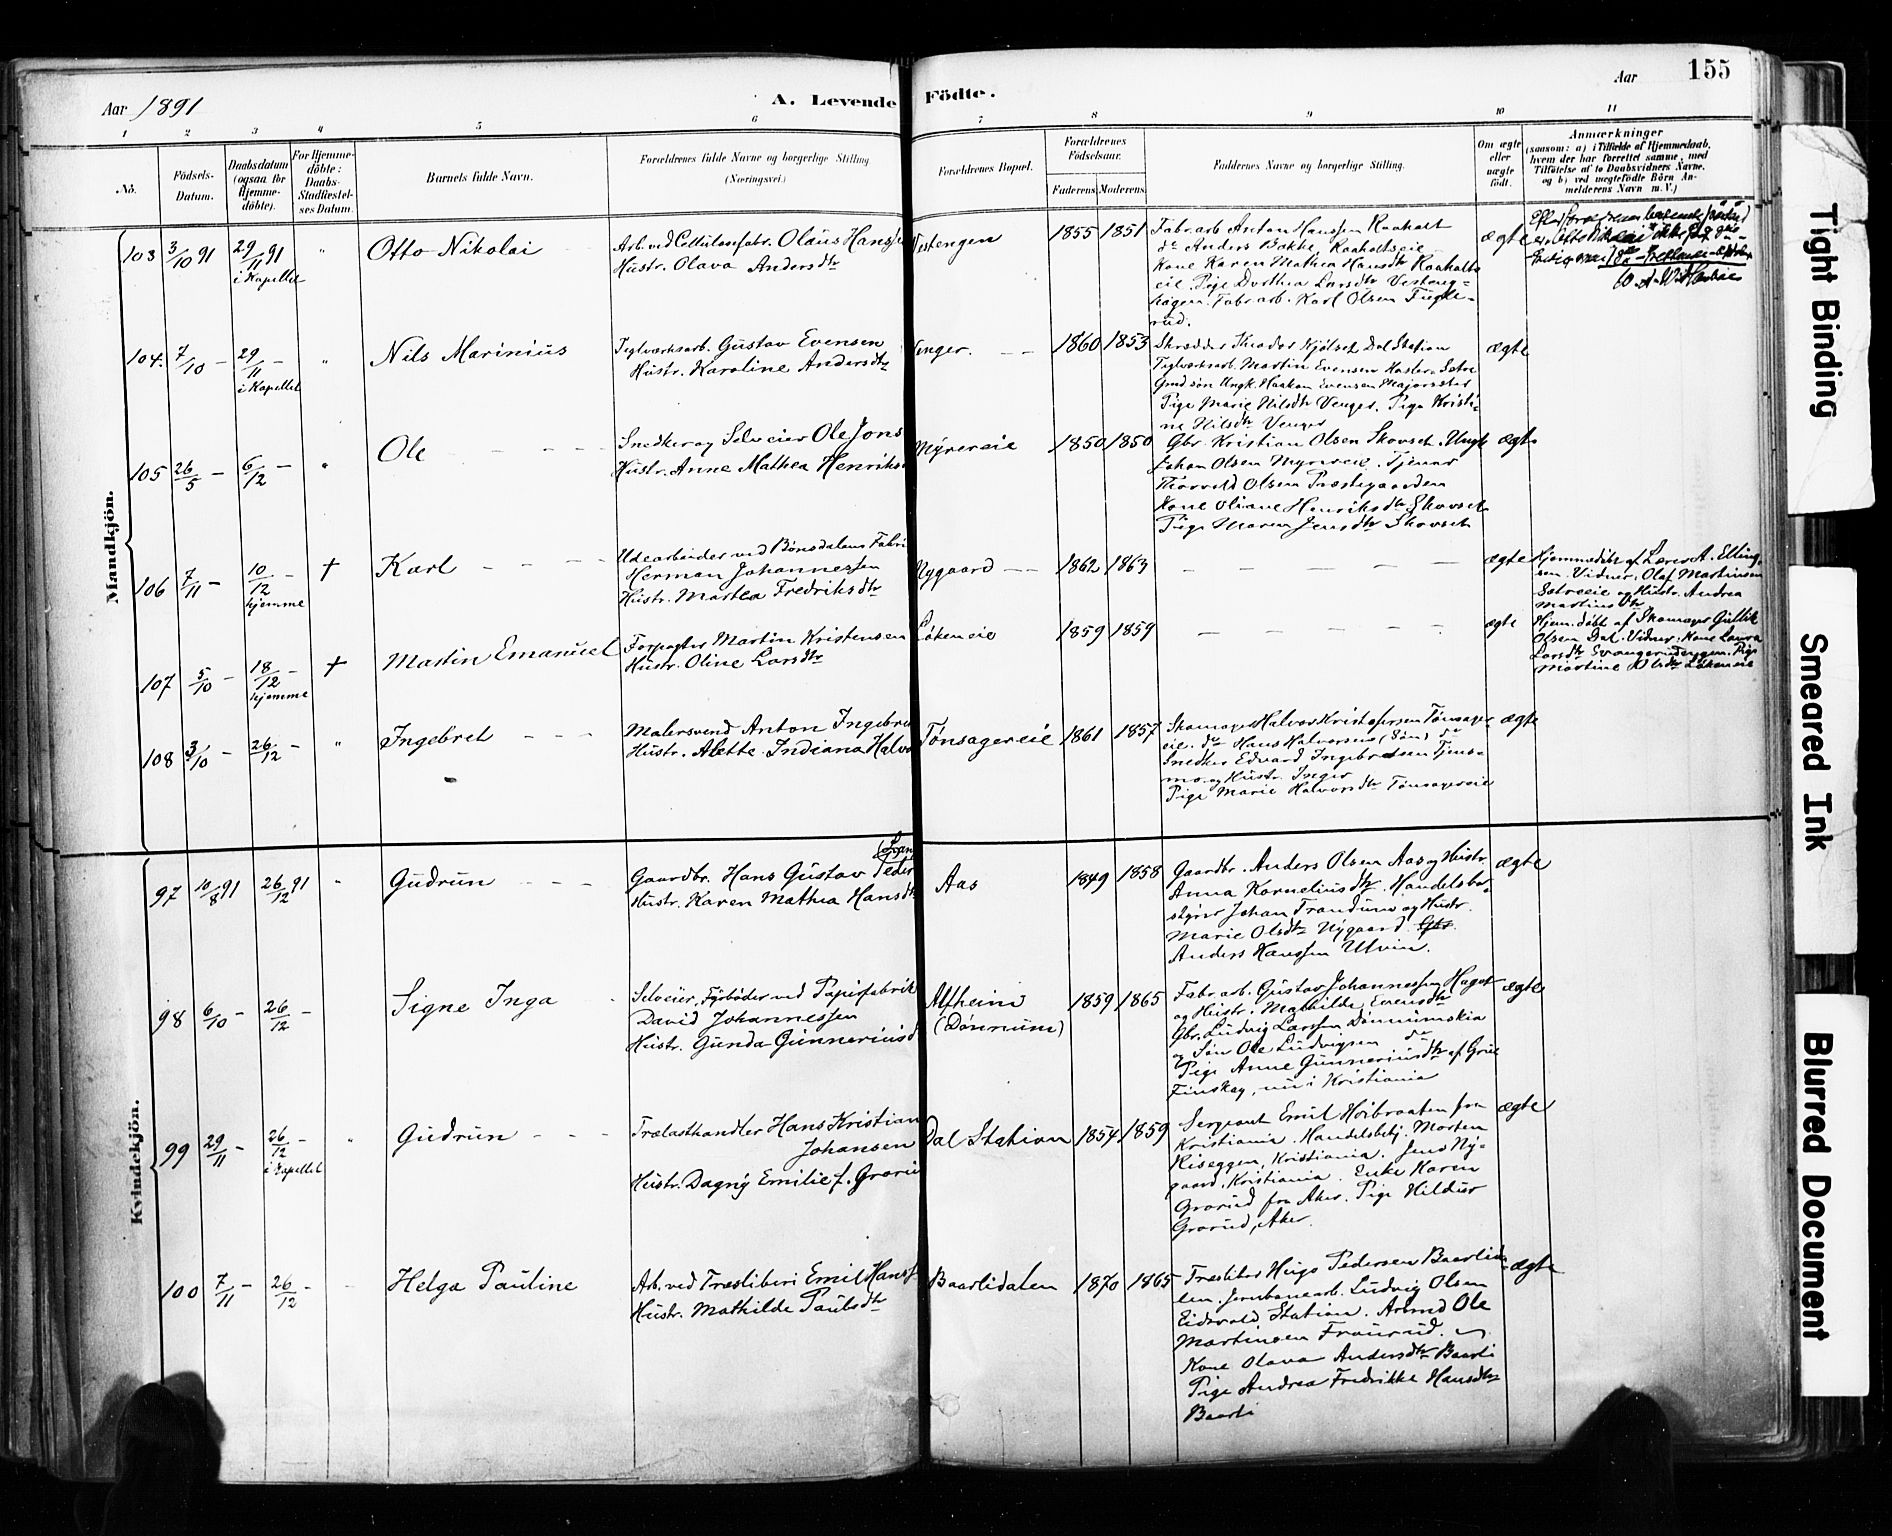 Aar 1891
A. Levende Födte.
Aar 155
1 2 3 4 5 6 7 8 9 10 11
No.
Födsels-Datum.
Daabsdatum (ogsaa for Hjemme-döbte).
For Hjemme-döbte: Daabs-Stadfæstel-ses Datum.
Barnets fulde Navn.
Forældrenes fulde Navne og borgerlige Stilling (Næringsvei.)
Forældrenes Bopæl.
Forældrenes Födselsaar.
Faderens Moderens
Faddernes Navne og borgerlige Stilling.
Om ægte eller uægte födt.
Anmærkninger
(saasom: a) i Tilfælde af Hjemmedaab,
hvem der har forrettet samme, med
Tilföielse af to Daabsvidners Navne,
og b) ved uægtefödte Börn An-
melderens Navn m. V.)
Mandkjön.
103 3/10 91 29/11 91 i Kapellet " Otto Nikolai
Arb. ved Cellulosefabr. Olaus Hanss
Hustr. Olava Andersdtr
Vestengen 1855 1851
Fabr.arb Anton Hanssen Raaholt
do Anders Bakke, Raaholtseie
Kone Karen Mathea Hansdtr Raaholts
eie. Pige Dorthea Larsdtr Vesteng-
hagen. Fabr.arb. Karl Olsen Fugle-
rud.
ægte
104. 7/10 - 29/11 - i Kapellet " Nils Marinius
Teglværksarb. Gustav Evensen
Hustr. Karoline Andersdtr
Venger. - - 1860 1853
Skrædder Theodor Kjølset Dal Station
Teglværksarb. Martin Evensen
Gmd.søn Ungk. Haakon Evensen
Pige Marie Nilsdtr Venger. Pige Kristi-
ne Nilsdtr Venger
ægte
105 26/5 - 6/12 - " Ole
Snedker og Selveier Ole Jons
Hustr. Anne Mathea Henriks
Myrereie 1850 1850
Gbr. Kristian Olsen Skovset. Ungk
Johan Olsen Myrereie. Tjener
Thorvald Olsen Præstegaarden
Kone Oliane Henriksdtr Skovset
Pige Maren Jensdtr Skovset
ægte
106 7/11 - 10/12 - hjemme † Karl
Udearbeider ved Bønsdalens Fabri
Herman Johannessen
Hustr. Martea Fredriksdtr
Nygaard - - 1862 1863 - - - - -
ægte
Hjemmedøbt af Lærer A. Elling
sen. Vidner: Olaf Martinsen
Sætreeie og Hustr. Andrea
Martinsdtr
107 5/10 - 18/12 - hjemme † Martin Emanuel
Forpagter Martin Kristensen
Hustr. Oline Larsdtr
Løkeneie 1859 1859 - - - - -
ægte
Hjem.døbt af Skomager Gullik
Olsen Dal. Vidner: Kone Laura
Larsdtr Pige
Martine Olsdtr Løkeneie
108 3/10 - 26/12 - " Ingebret
Malersvend Anton Ingebre
Hustr. Alette Indiana Halvo
Tønsagereie 1861 1857
Skomager Halvor Kristofersen Tønsager-
eie. do Hans Halvorsen (Søn) do
Snedker Edvard Ingebretsen Tjens-
mo. og Hustr. Inger
Pige Marie Halvorsdtr Tønsagereie
ægte
Kvindekjön.
97 10/8 91 26/12 91 " Gudrun
Gaardbr. Hans Gustav Peder
Hustr. Karen Mathea Hansdtr
Aas 1849 1858
Gaardbr. Anders Olsen Aas og Hustr.
Anna Korneliusdtr. Handelsbe-
styrer Johan Trandum og Hustr.
Marie Olsdtr Nygaard. Gbr.
Anders Hanssen Ulvin.
ægte
98 6/10 - 26/12 - Signe Inga
Selveier, Fyrbøder ved Papirfabrik
David Johannessen
Hustr. Gunda Gunneriusd
Alfheim (Dønnum) 1859 1865
Fabr.arb. Gustav Johannessen Hager
og Hustr. Mathilde Evensdtr
Gbr. Ludvig Larssen Dønnumskia
og Søn Ole Ludvigsen do
Pige Anne Gunneriusdtr af Grue
Finskog, nu i Kristiania
ægte
99 29/11 - 26/12 - i Kapellet " Gudrun
Trælasthandler Hans Kristian
Johansen
Hustr. Dagny Emilie f. Grorud
Dal Station 1854 1859
Sergeant Emil Høibraaten fra
Kristiania. Handelsbetj. Morten
Kiseggen, Kristiania. Jens Ny-
gaard, Kristiania. Enke Karen
Grorud fra Aker. Pige Hildur
Grorud, Aker.
ægte
100 7/11 - 26/12 - Helga Pauline
Arb. ved Træsliberi Emil Hans
Hustr. Mathilde Paulsdtr
Baarlidalen 1870 1865
Træsliber Hugo Pedersen Baarlida
len. Jernbanearb. Ludvig Olsen
Eidsvold Station. Arbmd Ole
Martinsen Traurud.
Kone Olava Andersdtr Baarli
Pige Andrea Fredrikke Hansdtr
Baarli
ægte
Tight Binding
Smeared Ink
Blurred Document